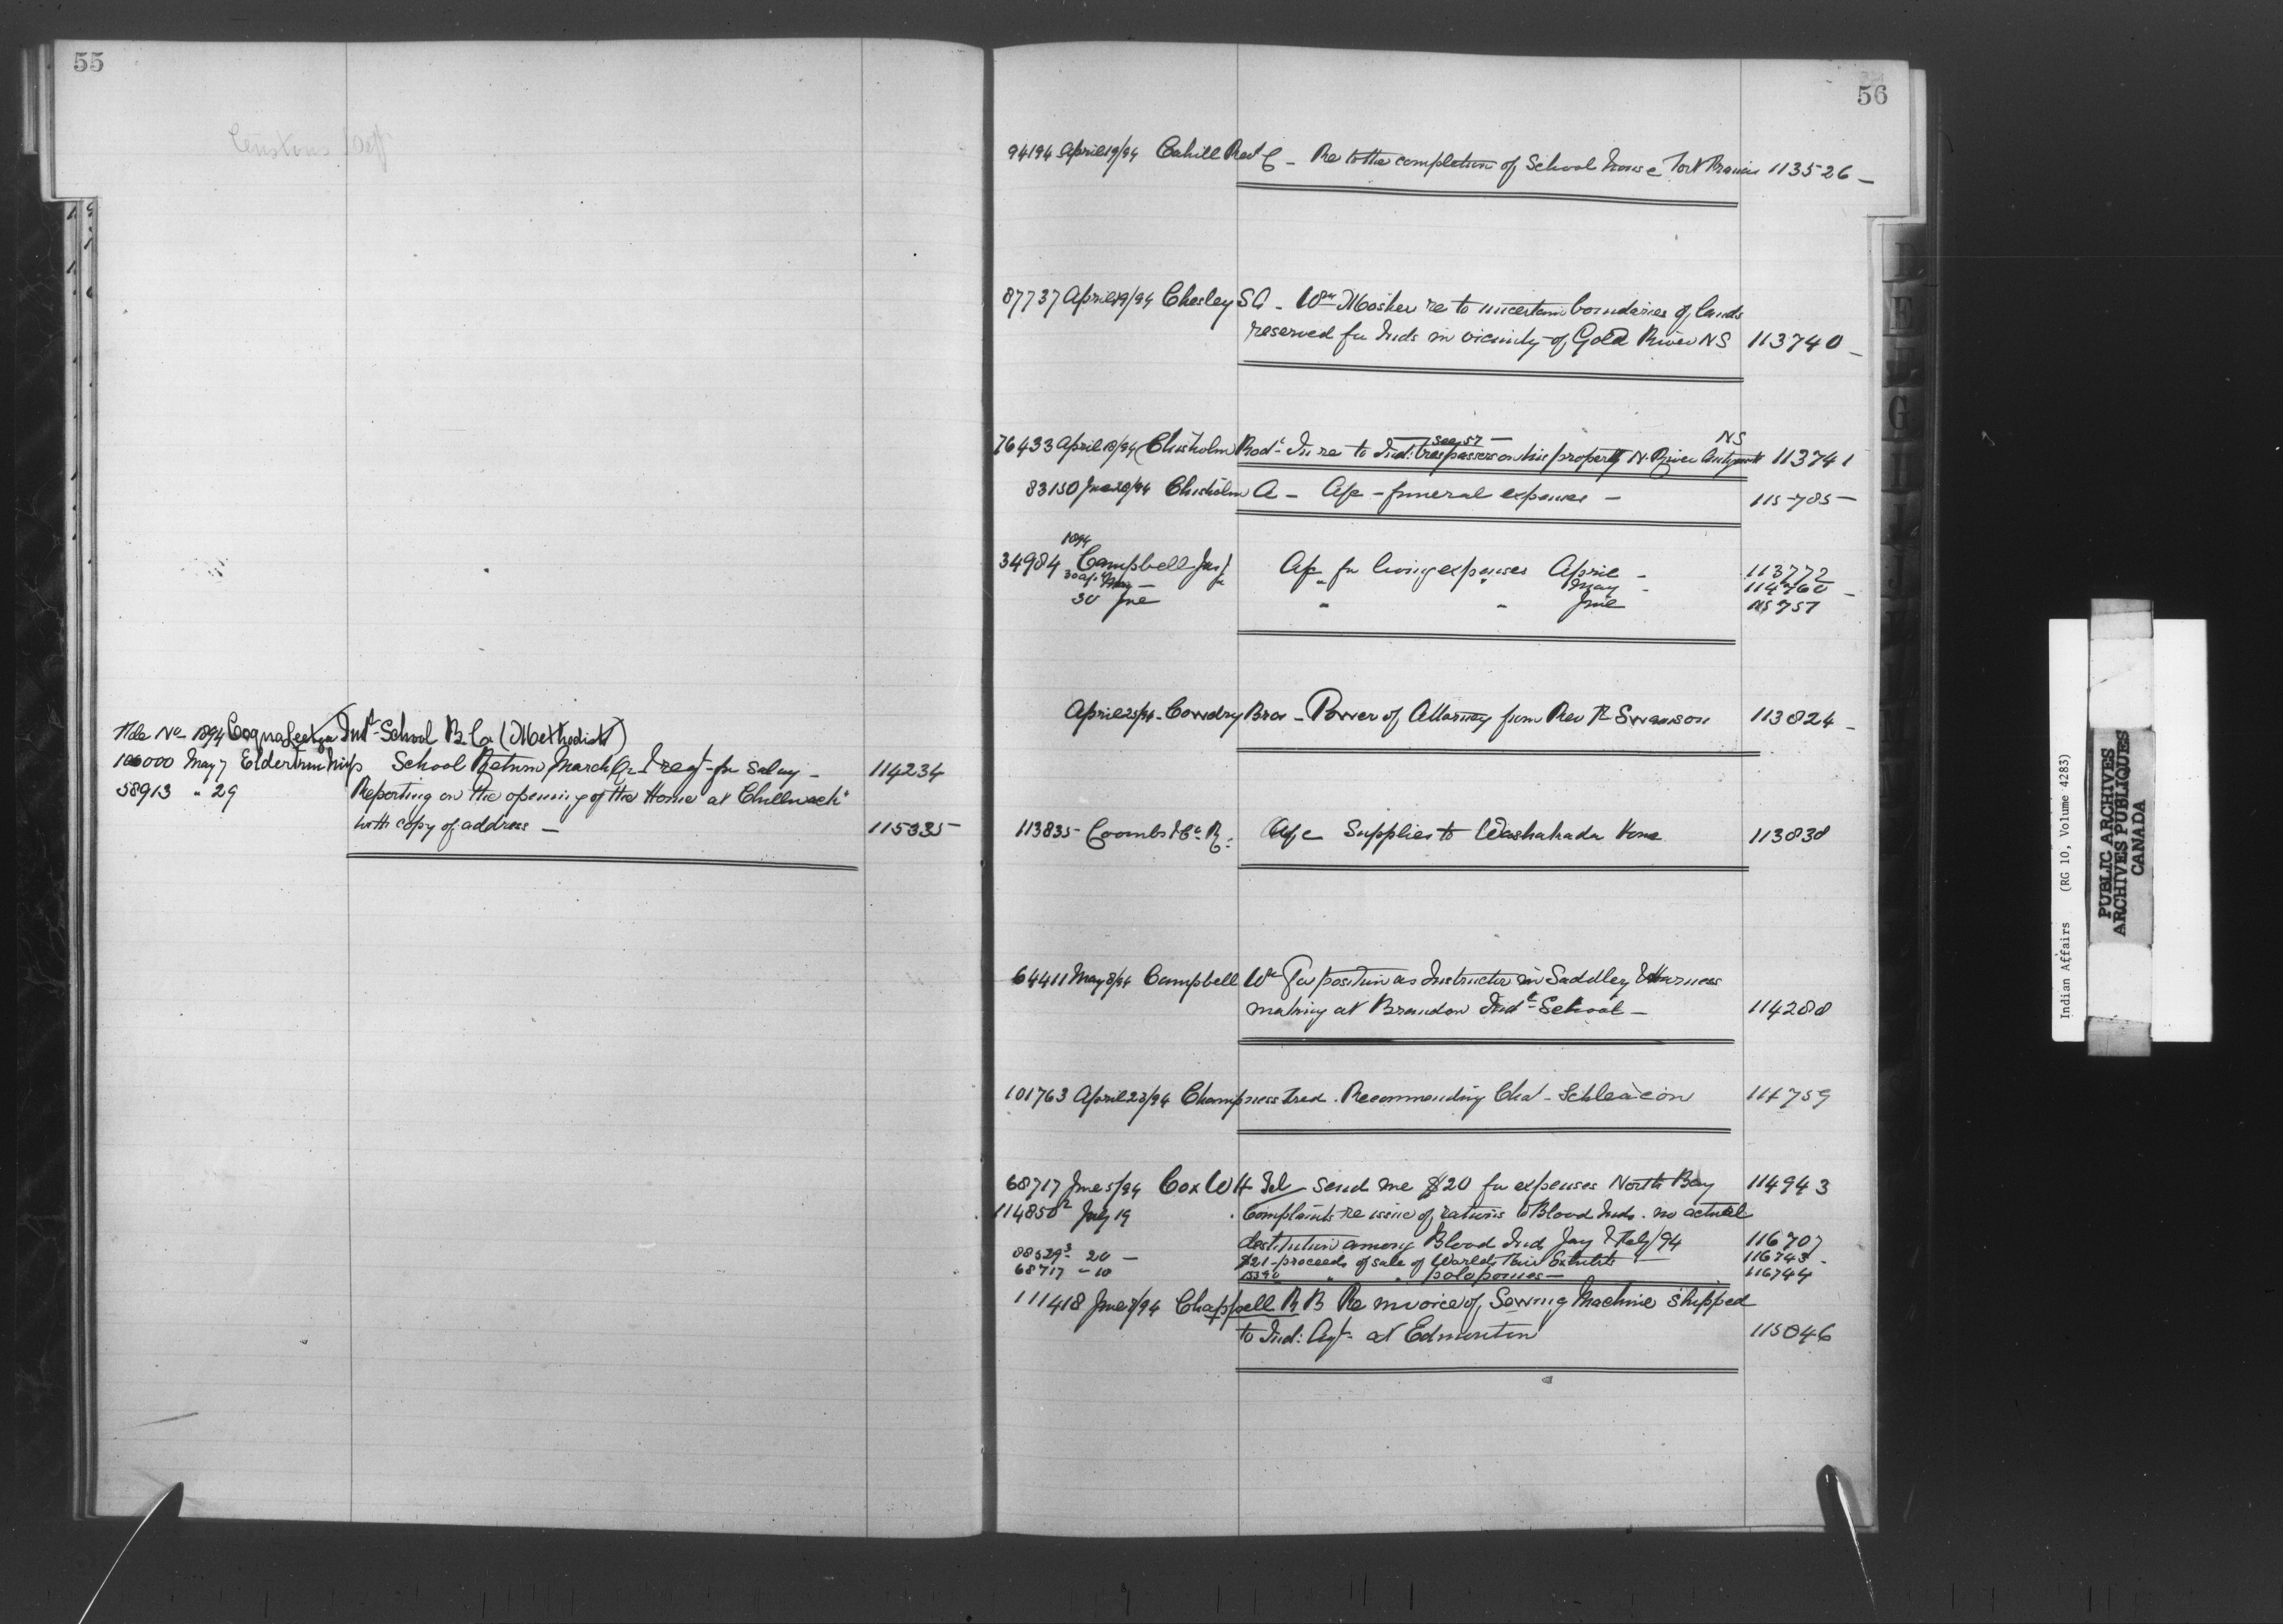 55
Customs Dept
File No 1894 Coqualeetza Indl School B.C. (Methodist)
106000 May 7 Elderton Miss School Return March Qr & reqt for Salary - 114234
58913 " 29 Reporting on the opening of the Home at Chilliwack
with copy of address - 115335
56
94194 April 19/94 Cahill Revd C - Re to the completion of School house Fort Francis 113526 -
87737 April 19/94 Chesley S A - Wm Mosher re to uncertain boundaries of lands
reserved for Inds in vicinity of Gold River NS 113740 -
See 57 - NS
76433 April 18/94 Chisholm Rod - In re to Ind: trespassers on his property N. River Antigonish 113741
83150 June 20/94 Chisholm A - A/c - funeral expenses - 115785 -
1894
34984 Campbell Jas A/c for living expenses April - 113772
30 May - " " May - 114760 -
30 June " " June 115757
April 25/94 - Cowdry Bros - Power of Attorney from Rev R Swanson 113824 -
113835 Coombs & Co R. A/c Supplies to Washakada Home 113838
64411 May 8/94 Campbell Wm For position as Instructor in Saddlery & Harness
making at Brandon Indl School - 114288
101763 April 23/94 Champness Fred. Recommending Chas. 114759
68717 June 5/94 Cox W H Tel send me $20 for expenses North Bay 114943
114850 2 July 19 Complaints re issue of rations to Blood Inds. no actual
destitution among Blood Ind Jany & Feby/94 116707
88529 3 20 - $21 - proceeds of sale of Worlds Fair Exhibits - 116743 -
68717 - 10 " " polo ponies - 116744
111418 June 7/94 Chappell R B Re invoice of Sewing Machine shipped
to Ind: Agt - at Edmonton 115046
Indian Affairs (RG 10, Volume 4283)
PUBLIC ARCHIVES
ARCHIVES PUBLIQUES
CANADA